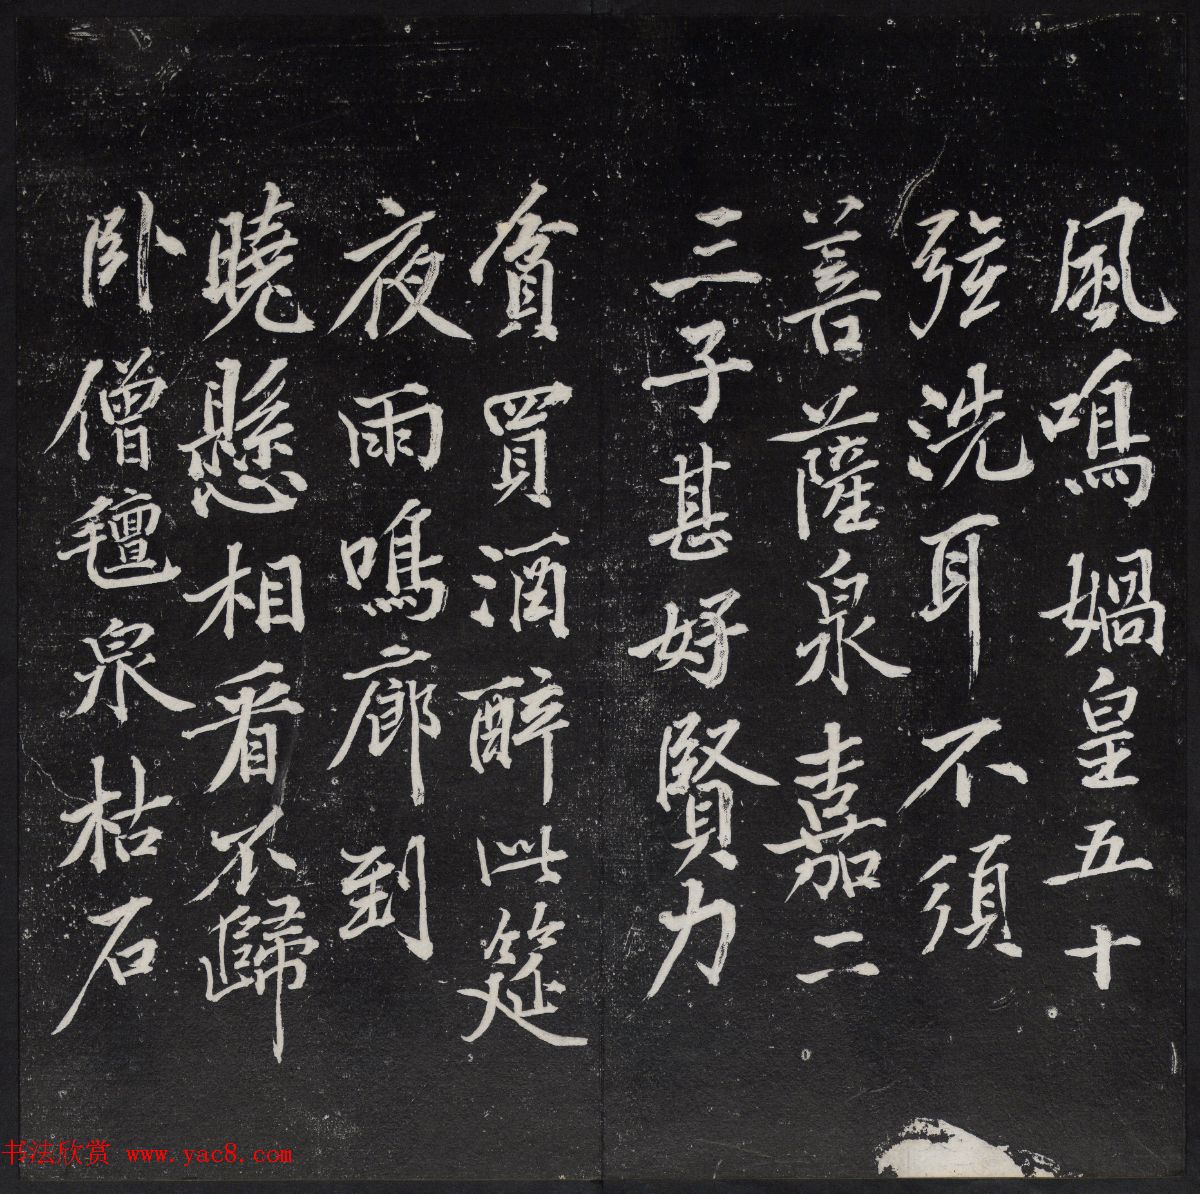 風鳴媧皇五十
弦洗耳不須
菩薩泉嘉二
三子甚好賢力
貧買酒醉此筵
夜雨鳴廊到
曉懸相看不歸
臥僧氈泉枯石
书法欣赏 www.yac8.com